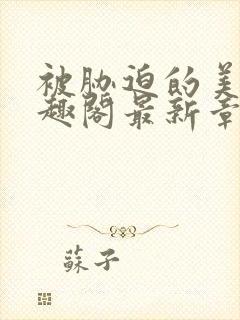 被胁迫的美
趣阁最新章
蘇子